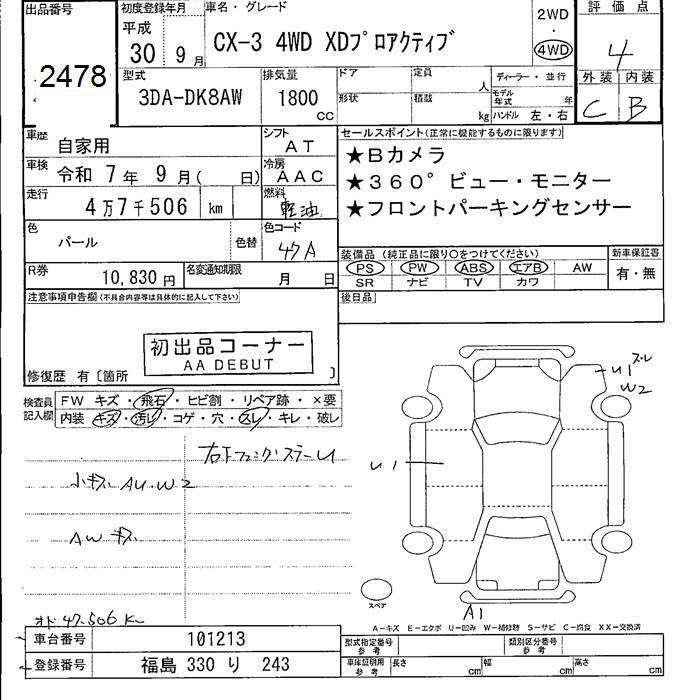 出品番号 初度登録年月 車名・グレード 2WD 評価点
平成 30 9月 CX-3 4WD XDプロアクティブ 4WD 4
2478 型式 排気量 ドア 定員 人 ディーラー・並行 外装 内装
3DA-DK8AW 1800 CC 形状 積載 kg モデル年式 年 C B
ハンドル 左・右
車歴 自家用 シフト AT セールスポイント(正常に機能するものに限ります)
車検 令和 7年 9月( 日) 冷房 AAC ★Bカメラ
走行 4万7千506 km 燃料 軽油 ★360°ビュー・モニター
★フロントパーキングセンサー
色 パール 色替 色コード 47A
装備品(純正品に限り○をつけてください) 新車保証書
R券 10,830円 名変通知期限 月 日 PS PW ABS エアB AW 有・無
SR ナビ TV カワ
注意事項申告欄(不具合内容等は具体的に記入して下さい) 後日品
初出品コーナー
AA DEBUT
修復歴 有〔箇所 〕
検査員記入欄 FW キズ・飛石・ヒビ割・リペア跡・×要
内装 キズ・汚レ・コゲ・穴・スレ・キレ・破レ
U1
W2
U1
小キズ AU・W2
AW キズ
スペア
A1
オド 47,506 K
A-キズ E-エクボ U-凹み W-補修跡 S-サビ C-腐食 XX-交換済
車台番号 101213 型式指定番号 参考 類別区分番号 参考
登録番号 福島 330 り 243 車庫証明用 参考 長さ cm 幅 cm 高さ cm